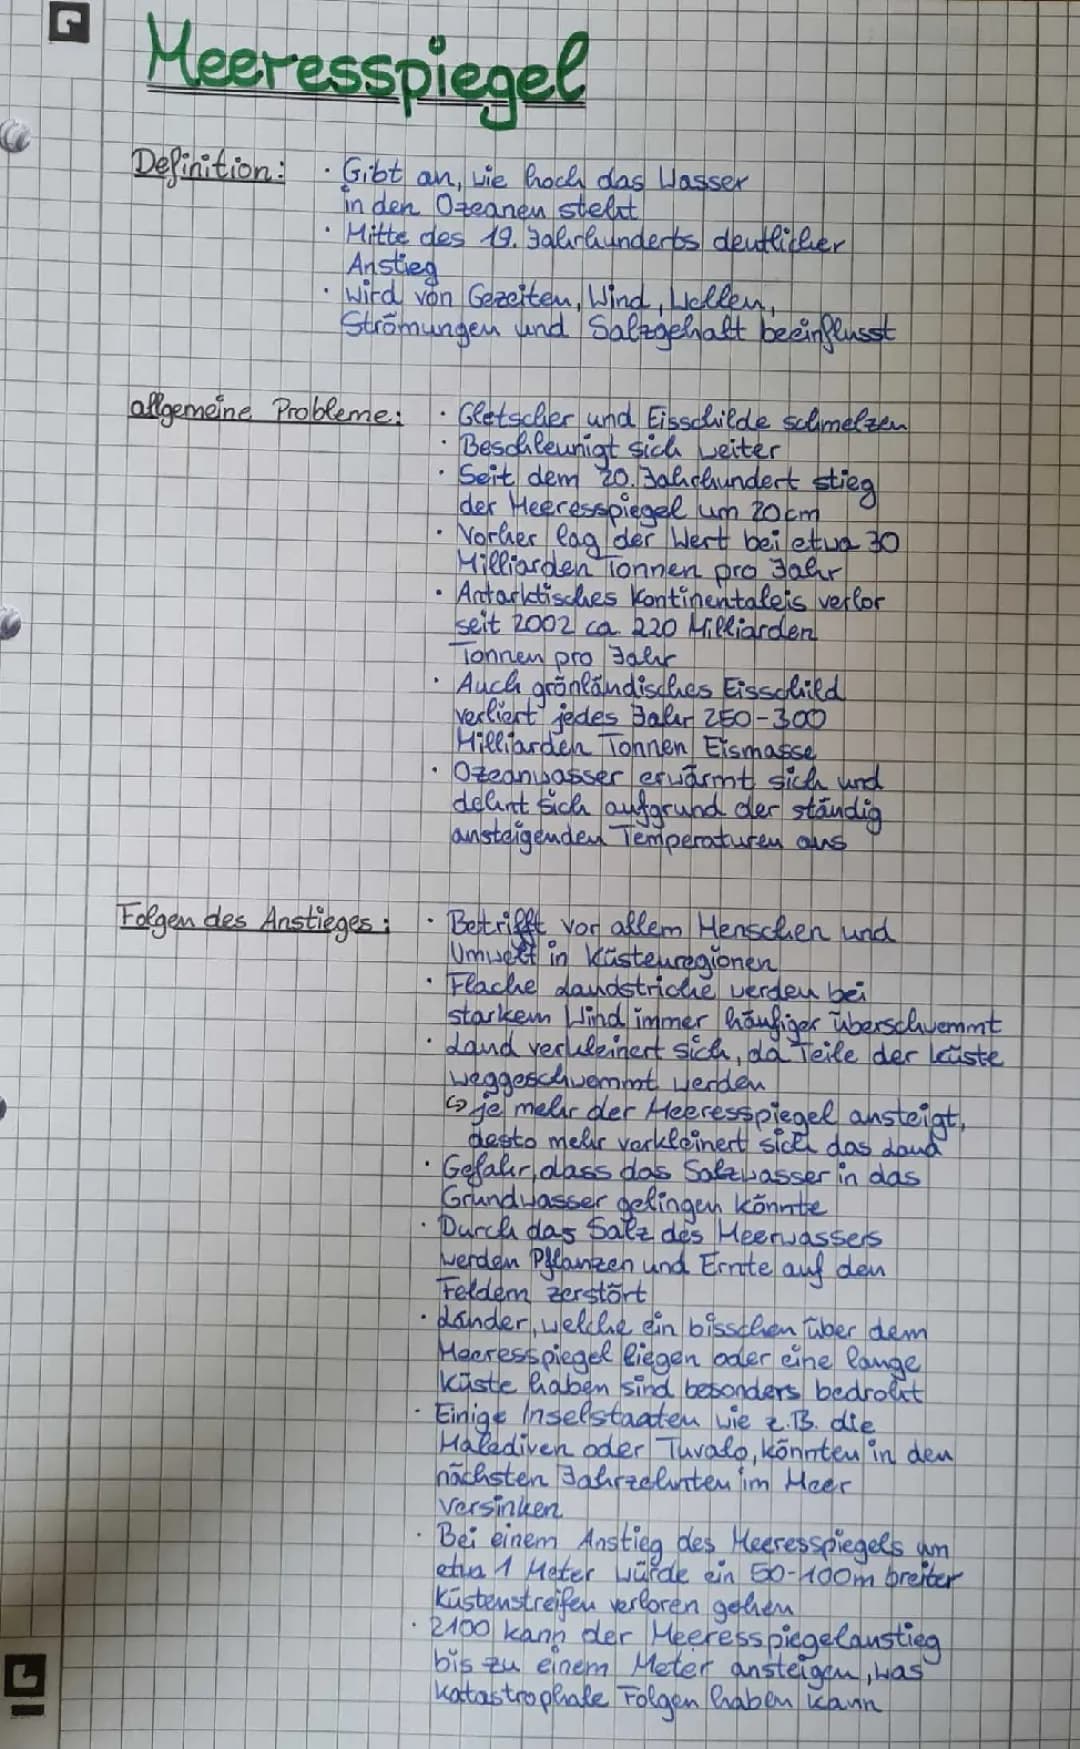 Meeresspiegel
Definition: · Gibt an, wie hoch das Wasser
in den Ozeanen steht
· Mitte des 19. Jahrhunderts deutlicher
Anstieg
· wird von Gezeiten, Wind, Wellen,
Strömungen und Salzgehalt beeinflusst
allgemeine Probleme: · Gletscher und Eisschilde schmelzen
· Beschleunigt sich weiter
· Seit dem 20. Jahrhundert stieg
der Meeresspiegel um 20cm
· Vorher lag der Wert bei etwa 30
Milliarden Tonnen pro Jahr
· Antarktisches Kontinentaleis verlor
seit 2002 ca. 220 Milliarden
Tonnen pro Jahr
· Auch grönländisches Eisschild
verliert jedes Jahr 250-300
Milliarden Tonnen Eismasse
· Ozeanwasser erwärmt sich und
dehnt sich aufgrund der ständig
ansteigenden Temperaturen aus
Folgen des Anstieges: · Betrifft vor allem Menschen und
Umwelt in Küstenregionen
· Flache Landstriche werden bei
starkem Wind immer häufiger überschwemmt
· Land verkleinert sich, da Teile der Küste
weggeschwemmt werden
↳ je mehr der Meeresspiegel ansteigt,
desto mehr verkleinert sich das Land
· Gefahr, dass das Salzwasser in das
Grundwasser gelingen könnte
· Durch das Salz des Meerwassers
werden Pflanzen und Ernte auf den
Feldern zerstört
· Länder, welche ein bisschen über dem
Meeresspiegel liegen oder eine lange
Küste haben sind besonders bedroht
· Einige Inselstaaten wie z.B. die
Malediven oder Tuvalo, könnten in den
nächsten Jahrzehnten im Meer
versinken
· Bei einem Anstieg des Meeresspiegels um
etwa 1 Meter würde ein 50-100m breiter
Küstenstreifen verloren gehen
· 2100 kann der Meeresspiegelanstieg
bis zu einem Meter ansteigen, was
katastrophale Folgen haben kann